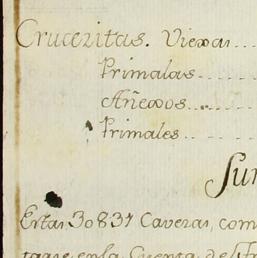 Cruceritas. Viexas....
Primalas....
Añexos....
Primales....
Sum
Estas 30837 Caveras, com
en la Cuenta de